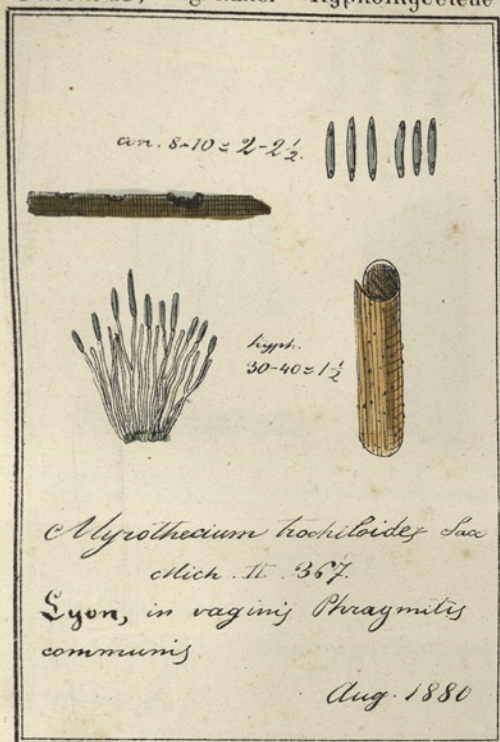 Hyphomyceteae
con. 8-10 = 2-2½.
hyph.
30-40 = 1½
Myrothecium trochiloides Sacc
Mich. II. 367.
Lyon, in vaginis Phragmitis
communis
Aug. 1880